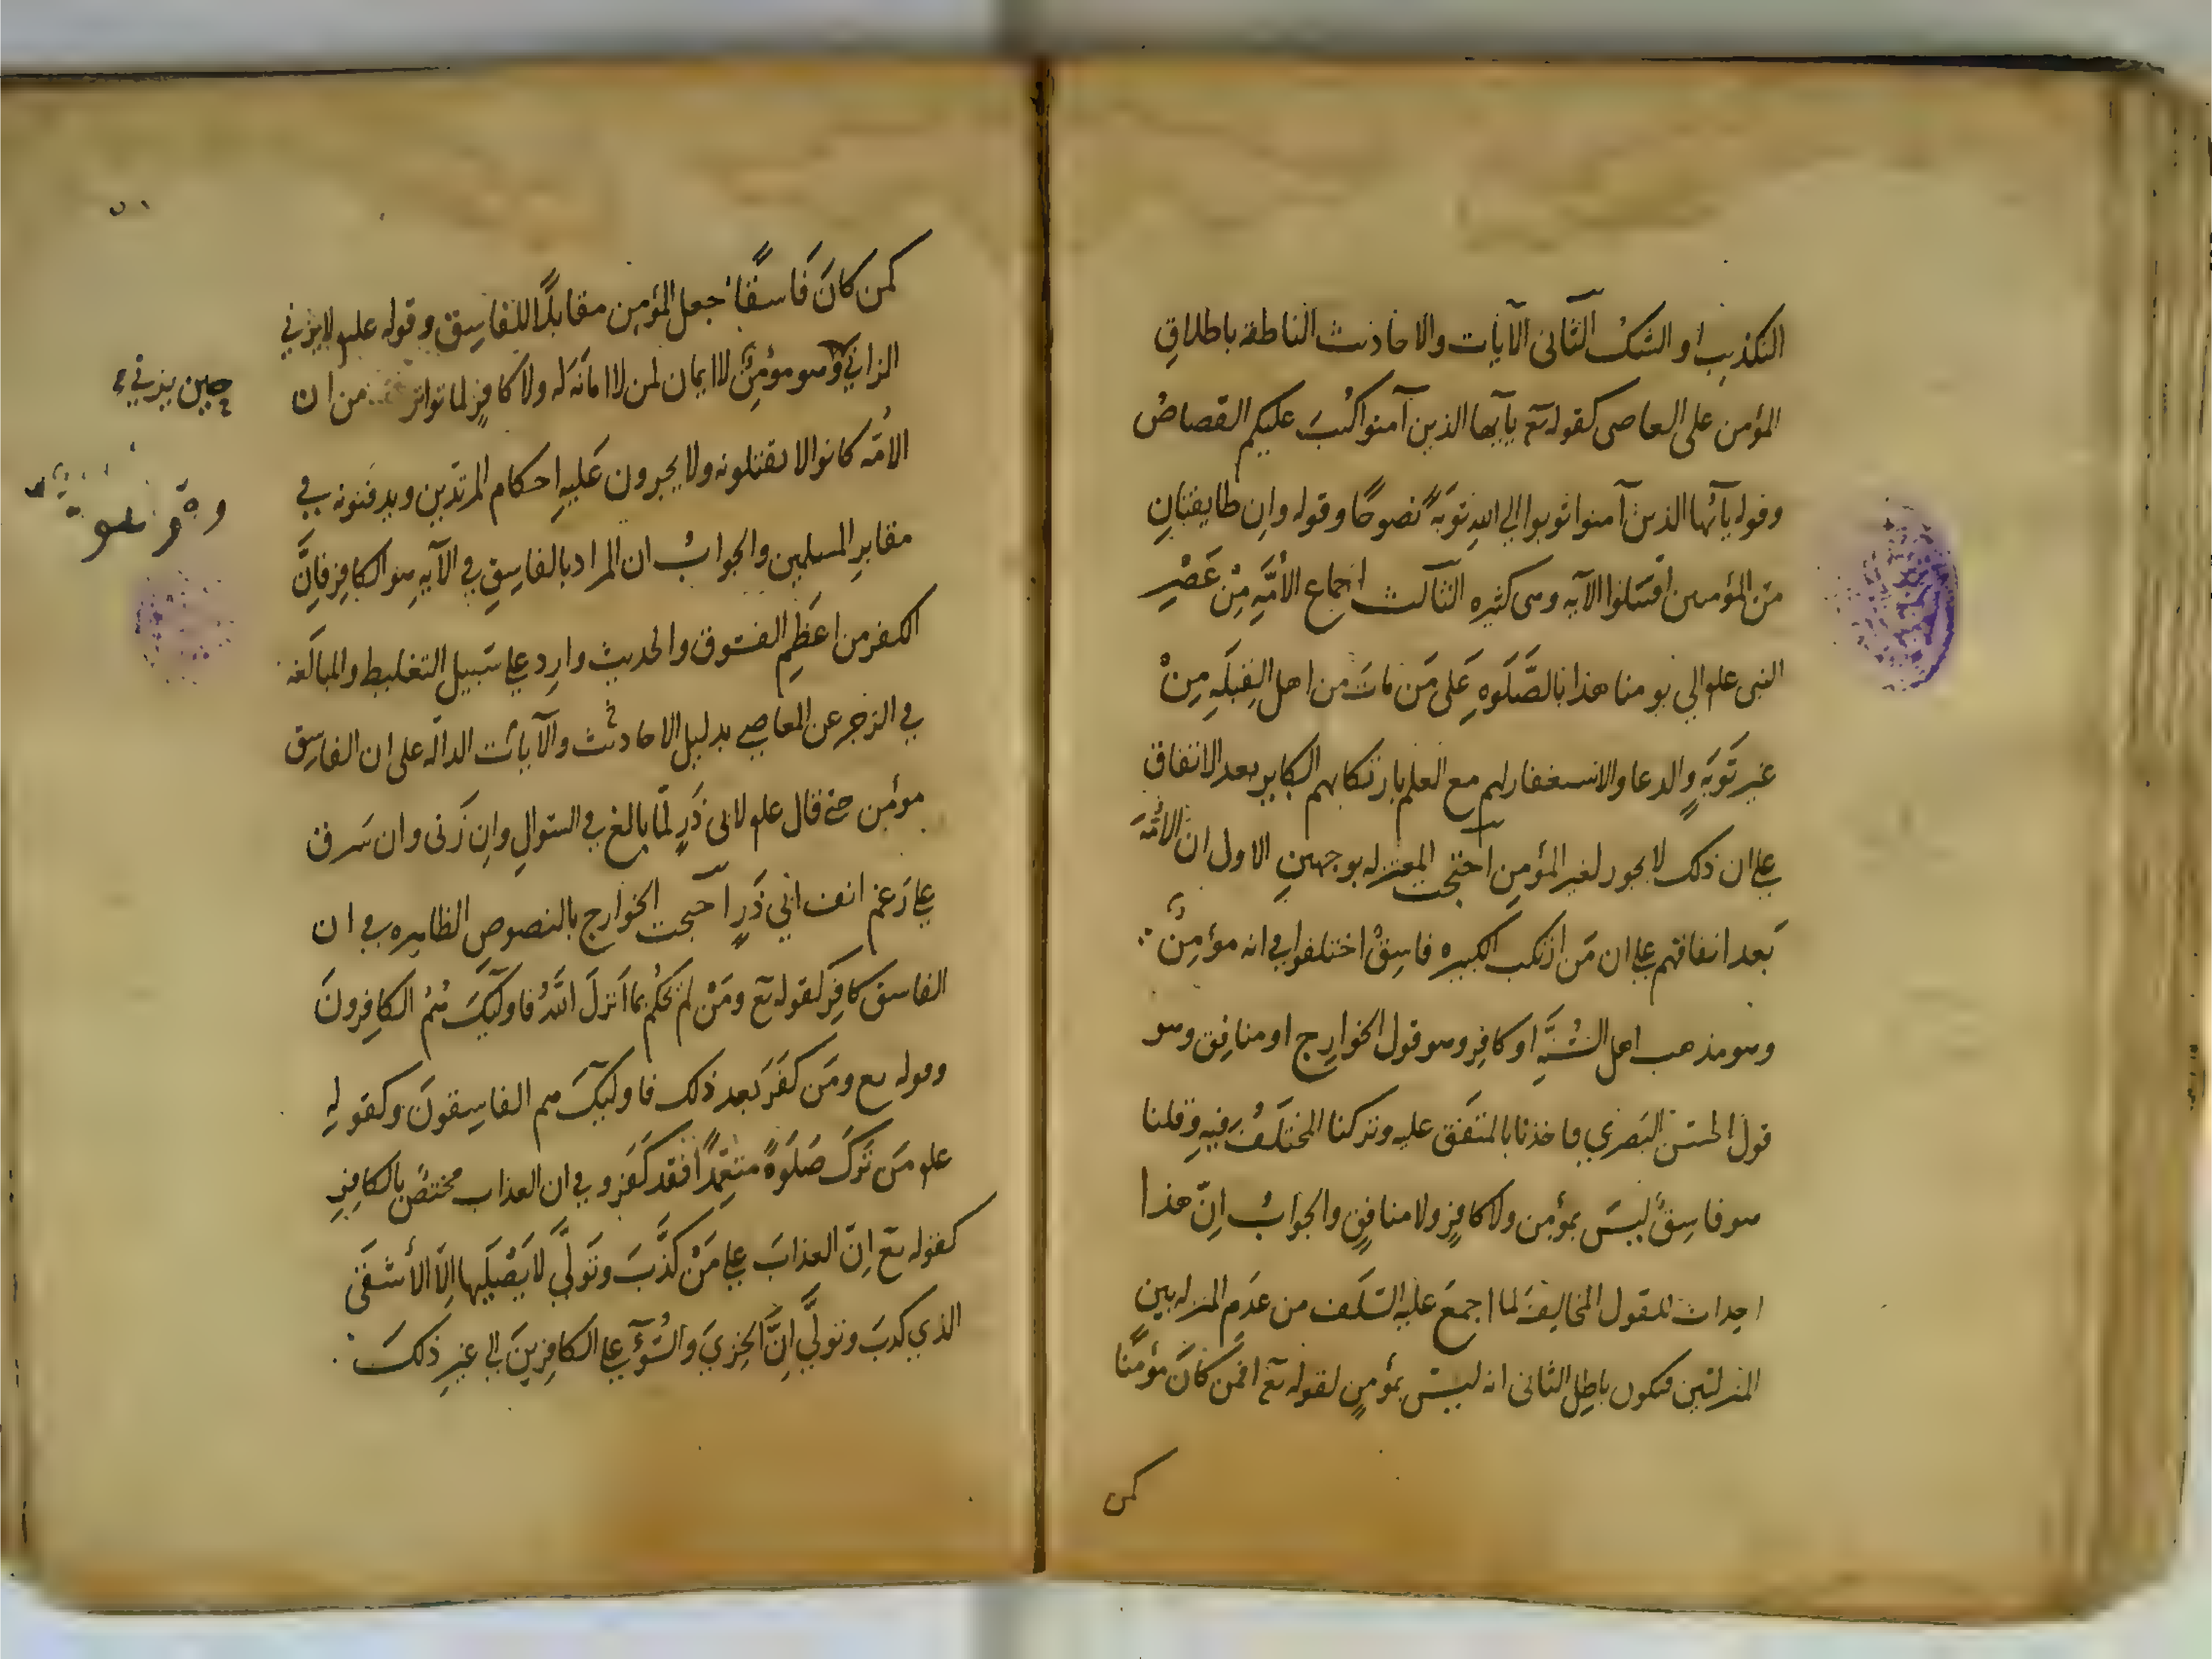 التكذيب او الشك الثاني الآيات والاحاديث الناطقة باطلاق
المؤمن على العاصي كقوله تع يآ يها الذين آمنوا كُتبَ عليكم القصاصُ
وقوله يآ ئها الذين آمنوا توبوا الي اللهِ توبَةً نصوحًا وقوله وانِ طايفتانِ
مَن المؤمنين اقتتلوا الآيه وهي كثيره الثالث اجماع الأُمَّةِ مِنْ عَصْرِ
النبي علم الي يومنا هذا بالصَّلَوهِ عَلَى مَن مَاتَ من اهل القِبلَهِ مِنْ
غير تَوبَةٍ والدعا والاستغفار لهم مع العلم بارتكابهم الكباير بعد الاتفاق
علي ان ذلك لا يجوز لغير المؤمنِ احتجت المعتزله بوجهينِ الاول ان الأُمَّةَ
بَعد اتفاقهم علي ان مَن ارتكب الكبيره فاسِقٌ اختلفوا في انه مؤمِنٌ
وهو مذهب اهل السُّنَّةِ او كافِر وهو قول الخوارِج او منافِق وهو
قول الحسَن البَصري فاخذنا بالمتفَق عليه وتركنا المختَلَفُ فيهِ وقلنا
هو فاسِقٌ ليسَ بمؤمِن ولا كافِرٍ ولا منافِقٍ والجوابُ اِنّ هذا
احداث للقول المخالِفِ لما اجمعَ عليه السَّلَف من عدَم المنزله بين
المنزلتين فيكون باطِل الثاني انه ليسَ بمؤمنٍ لقوله تع افمَن كانَ مؤمنًا
كمن
كمن كانَ فَاسقًا جعل المؤمِن مقابلاً للفاسِق وقوله عليه لا يزني
الزاني وهو مؤمِنٌ لا ايمان لمن لا امانَة لَه ولا كافرٍ لما تواتر من ان
حين يزني
الأمّة كانوا لا يقتلونه ولا يجرون عَليهِ احكام المرتدّين ويدفنونه في
مقابرِ المسلمين والجوابُ ان المراد بالفاسِقِ في الآيه هو الكافِر فاِنَّ
الكفر من اعظَم الفسُوق والحديث وارِد علي سَبيل التغليظ والمبالَغة
في الزجر عن المعاصي بدليل الاحاديث والآيات الدالّه على ان الفاسِق
مؤمن حتي قال علم لابي ذَرٍ لمّا بالغ في السّوالِ وانِ زَني وان سَرق
علي رَغم انف ابي ذَرٍ احتجت الخوارج بالنصوص الظاهِره في ان
الفاسق كافِرٌ كقوله تع ومَنْ لم يحكُم بما اَنزَلَ اللهُ فاوليَكَ هُمُ الكافِرونَ
وقوله تع ومَن كفَرَ بَعد ذلك فاوليَكَ هم الفاسِقونَ وكقولِهِ
علم مَن تَركَ صَلَوةً متعمّدًا فقد كَفَر وفي ان العذاب مختصٌ بالكافِرِ
كقوله تع اِنّ العذابَ علي مَنْ كذَّبَ وتَولَّي لا يَصْليَها اِلَّا الأشقَى
الذي كذبَ وتولَّي اِنَّ الخِزيَ والسُّوَءَ علي الكافِرينَ الي غيرِ ذَلكَ